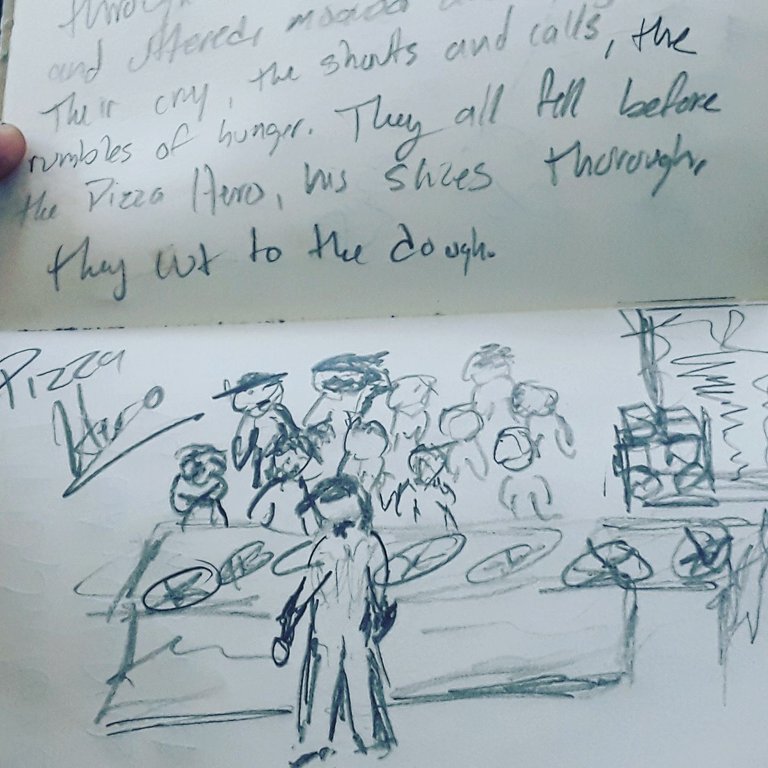 through
and uttered, moans
Their cry, the shouts and calls, the
rumbles of hunger. They all fell before
the Pizza Hero, his slices thorough,
they cut to the dough.
Pizza
Hero